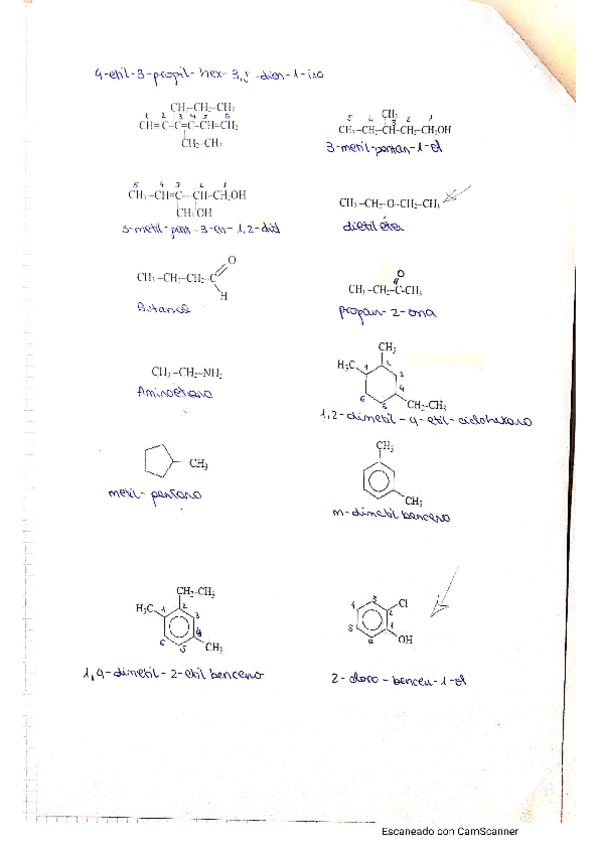 4-etil-3-propil-hex-3,5-dien-1-ino
CH₂-CH₂-CH₃
1 2 3 4 5 6
CH≡C-C=C-CH=CH₂
CH₂-CH₃
CH₃
5 4 3 2 1
CH₃-CH₂-CH-CH₂-CH₂OH
3-metil-pentan-1-ol
5 4 3 2 1
CH₃-CH=C-CH-CH₂OH
CH₃ OH
3-metil-pent-3-en-1,2-diol
CH₃-CH₂-O-CH₂-CH₃
dietiléter
O
CH₃-CH₂-CH₂-C
H
Butanal
O
CH₃-CH₂-C-CH₃
propan-2-ona
CH₃-CH₂-NH₂
Aminoetano
CH₃
H₃C 1 2 3 4 5 6
CH₂-CH₃
1,2-dimetil-4-etil-ciclohexano
CH₃
metil-pentano
CH₃
CH₃
m-dimetil benceno
CH₂-CH₃
H₃C 1 2 3 4 5 6
CH₃
1,4-dimetil-2-etil benceno
4 3 2 Cl
5 6 1 OH
2-cloro-bencen-1-ol
Escaneado con CamScanner